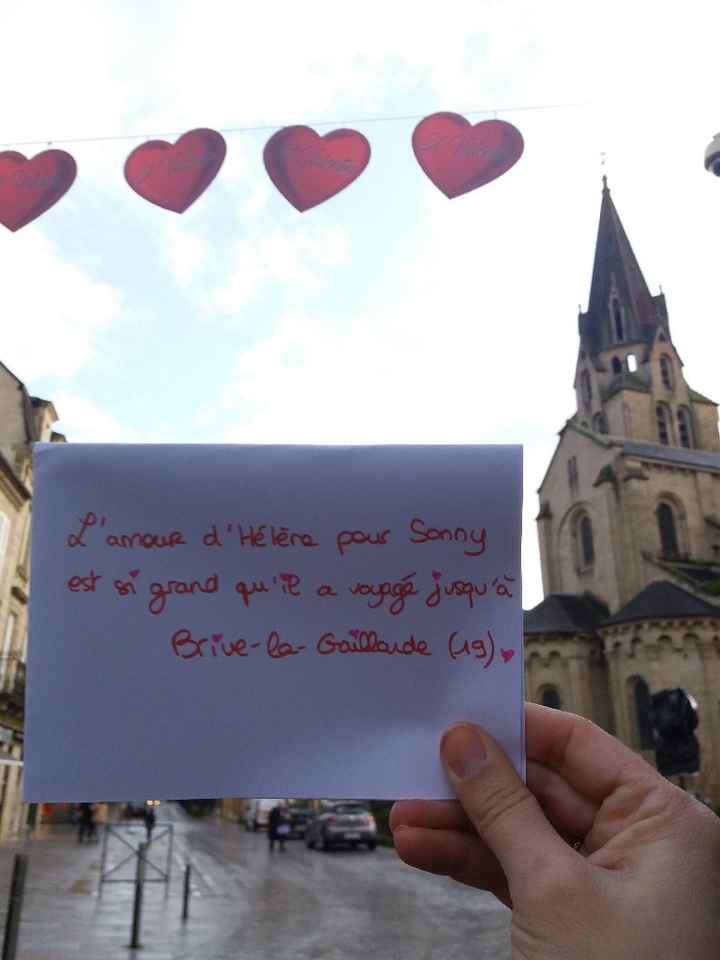 L'amour d'Hélèna pour Sonny
est si grand qu'il a voyagé jusqu'à
Brive-la-Gaillarde (19)